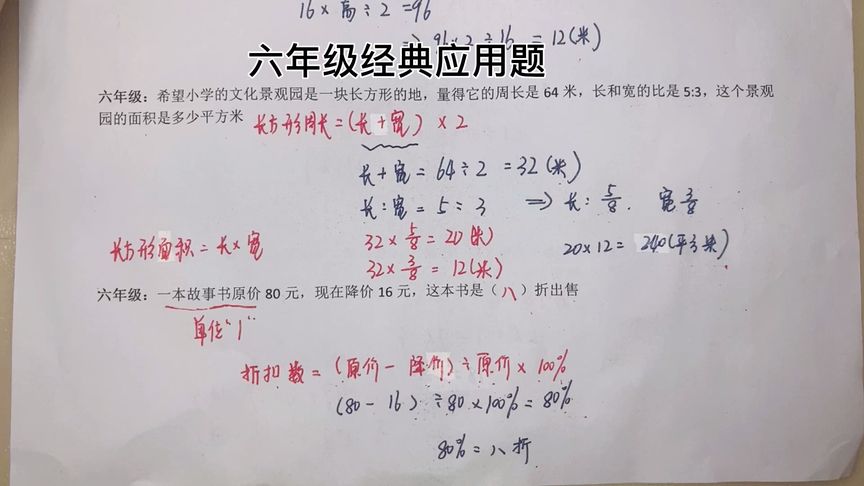 16×高÷2=96
⇒ 96×2÷16=12(米)
六年级经典应用题
六年级：希望小学的文化景观园是一块长方形的地，量得它的周长是 64 米，长和宽的比是 5:3，这个景观
园的面积是多少平方米 长方形周长=(长+宽)×2
长+宽=64÷2=32(米)
长:宽=5:3 ⇒ 长:5/8. 宽3/8
长方形面积=长×宽 32×5/8=20(米) 20×12=240(平方米)
32×3/8=12(米)
六年级：一本故事书原价 80 元，现在降价 16 元，这本书是（八）折出售
单位"1"
折扣数=(原价-降价)÷原价×100%
(80-16)÷80×100%=80%
80%=八折